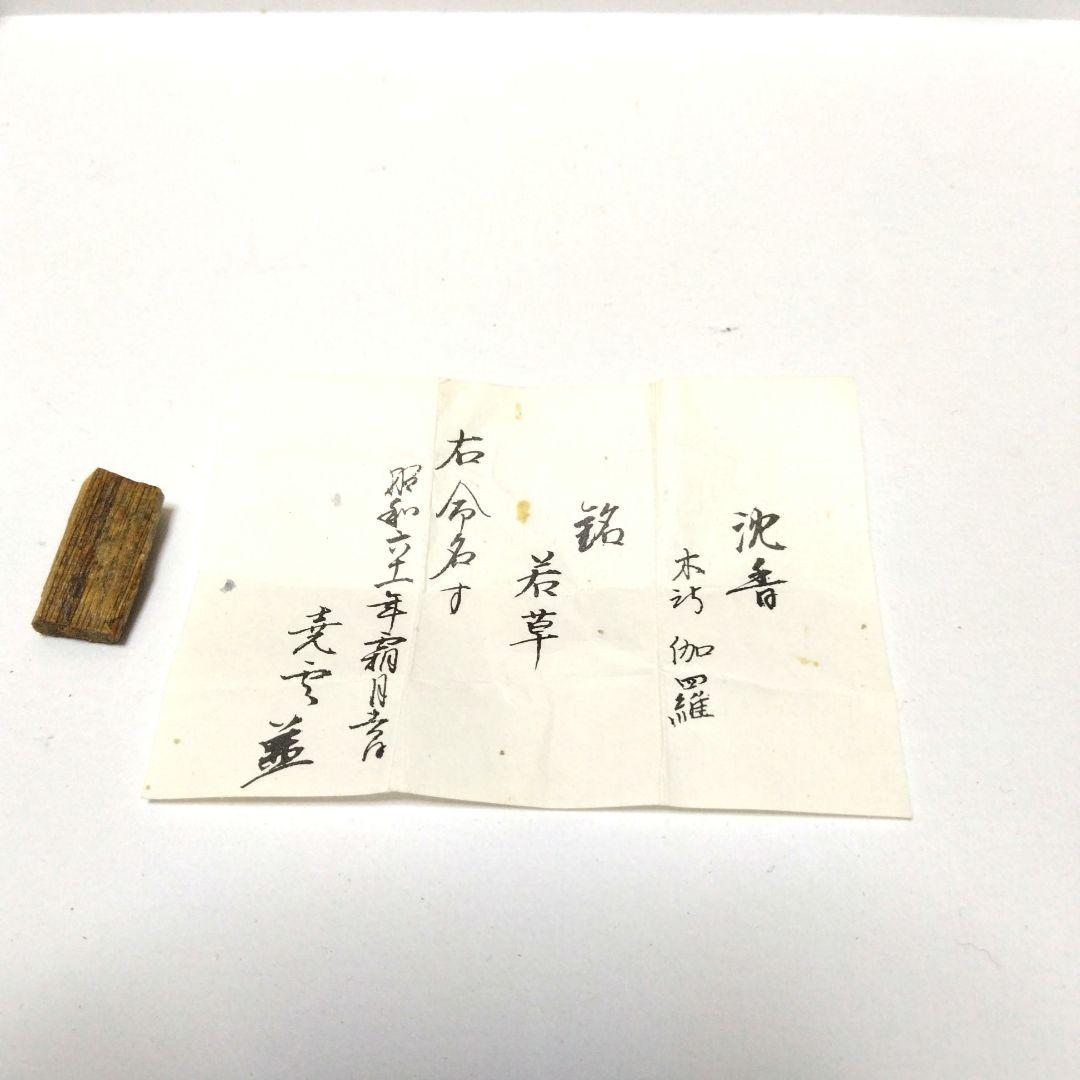 沈香
木所 伽羅
銘
若草
右命名す
昭和六十一年霜月吉日
堯雲